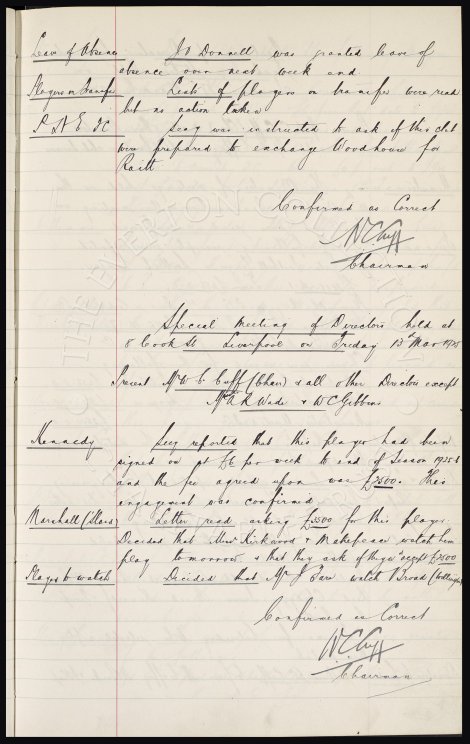 Leave of Absence J O Donnell was granted leave of
absence over next week end
Players on Transfer Lists of players on transfer were read
but no action taken.
Secy was instructed to ask if this club
were prepared to exchange Woodhouse for
Raitt.
Confirmed as Correct
W.C. Cuff
Chairman
Special Meeting of Directors held at
8 Cook St Liverpool on Friday 13th Mar 1925
Present Mr W C Cuff (Chair) & all other Directors except
Messrs A Wade & W C Gibbins
Kennedy Secy reported that this player had been
signed on at £6 per week to end of Season 1925.6
and the fee agreed upon was £2500. This
engagement was confirmed.
Marshall (Llan Letter read asking £3500 for this player.
Decided that Messrs Kirkwood & Makepeace watch him
play tomorrow & that they ask if they wd accept £2500
Players to watch Decided that Mr J Bare watch Broad (
Confirmed as Correct
W.C. Cuff
Chairman